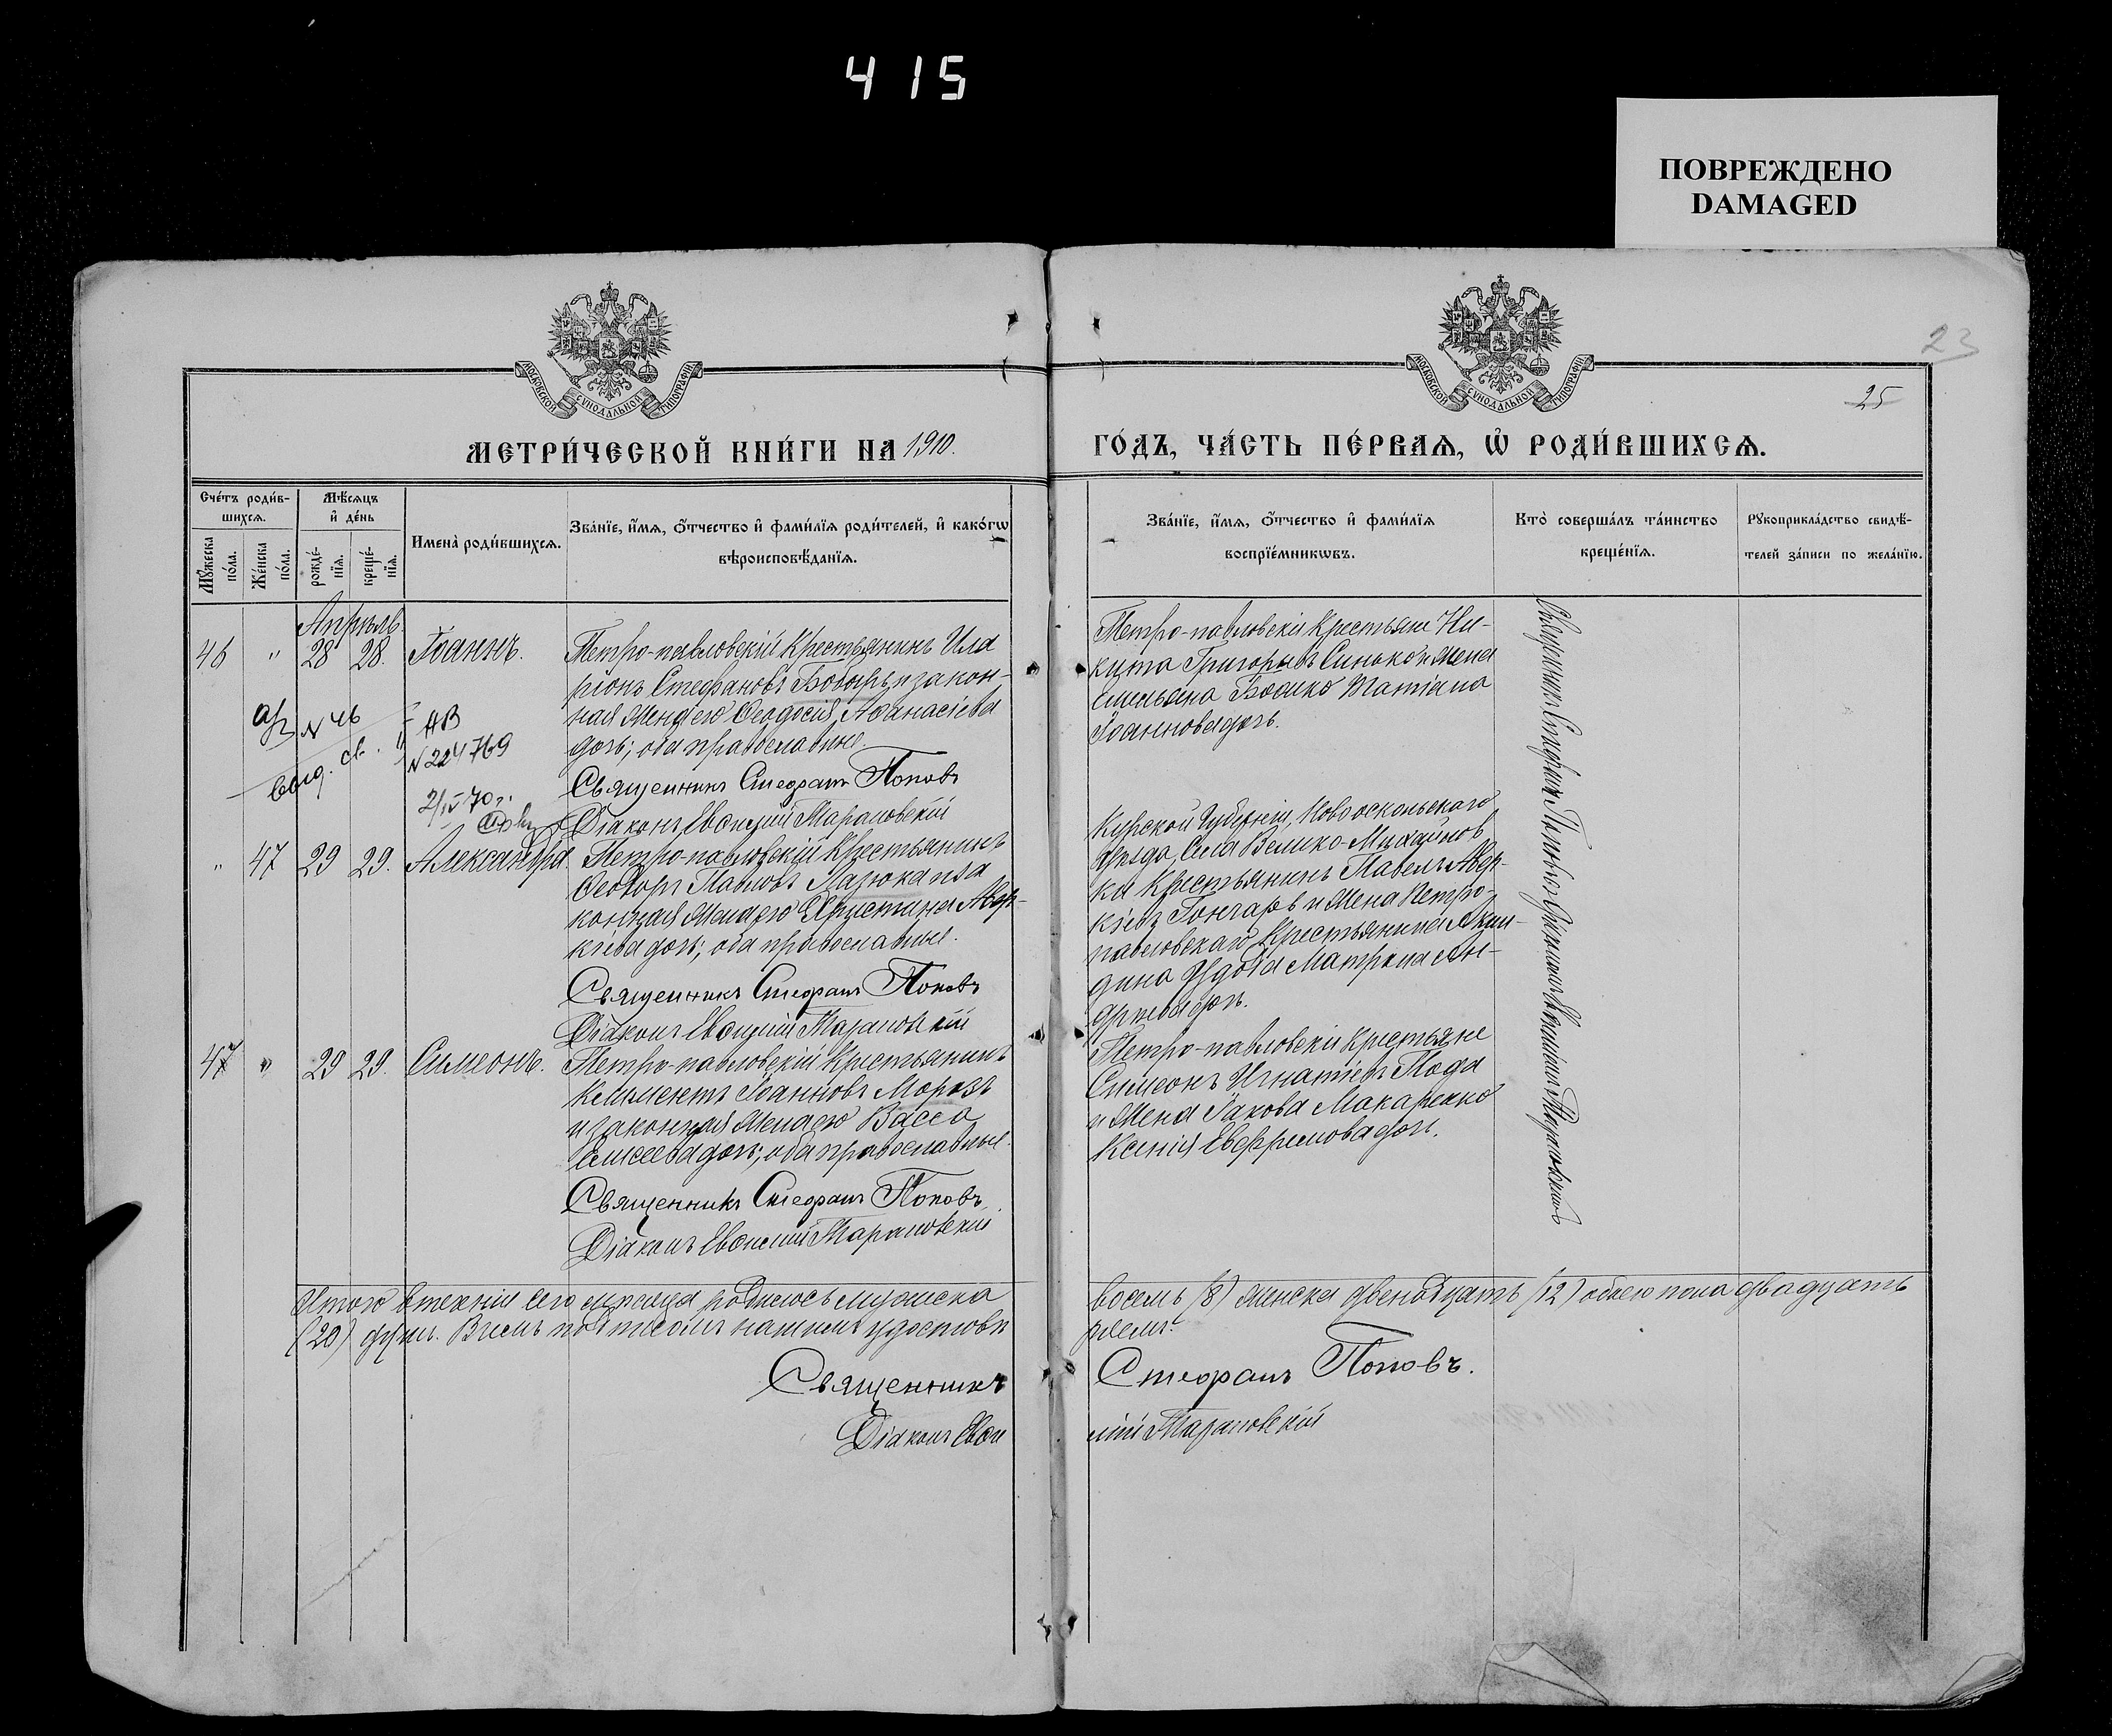 415
ПОВРЕЖДЕНО
DAMAGED
23
25
МОСКОВСКОЙ СѴНОДАЛЬНОЙ ТИПОГРАФІИ
МОСКОВСКОЙ СѴНОДАЛЬНОЙ ТИПОГРАФІИ
МЕТРИ́ЧЕСКОЙ КНИ́ГИ НА 1910.
ГО́ДЪ, ЧА́СТЬ ПЕ́РВАѦ, Ѡ҆ РОДИ́ВШИХСѦ.
Сче́тъ роди́в-
шихсѧ.
Мꙋ́жеска по́ла.
Же́нска по́ла.
Мѣ́сѧцъ
и҆ де́нь
рожде́-
нїѧ.
креще́-
нїѧ.
Имена̀ роди́вшихсѧ.
Зва́нїе, и҆́мѧ, ѻ҆́тчество и҆ фами́лїѧ роди́телей, и҆ како́гѡ
вѣроисповѣ́данїѧ.
Зва́нїе, и҆́мѧ, ѻ҆́тчество и҆ фами́лїѧ
воспрїе́мникѡвъ.
Кто̀ соверша́лъ та́инство
креще́нїѧ.
Рꙋкоприкла́дство свидѣ́-
телей за́писи по жела́нїю.
Апрѣль
46 " 28 28. Іоаннъ.
Петро-павловскій Крестьянинъ Ила
ріонъ Стефановъ Бовырь и закон-
ная жена его Ѳеодосія Аѳанасіева
дочь; оба православные.
Священникъ Стефанъ Поповъ
Діаконъ Евѳимій Тарановскій
N 46
выд. св.
II АВ
N 224769
2/IV 70 г.
Петро-павловскіе Крестьяне Ни-
кита Григорьевъ Синько и жена
Босико Татіана
Іоаннова дочь.
" 47 29 29. Александра.
Петро-павловскій Крестьянинъ
Ѳеодоръ Павловъ Лазюка и за
конная жена его Христина Авер-
кіева дочь; оба православные.
Священникъ Стефанъ Поповъ
Діаконъ Евѳимій Тарановскій
Курской Губерніи, Новооскольскаго
уѣзда, Села Велико-Михайлов
ки Крестьянинъ Павелъ Авер-
кіевъ Гончаръ и жена Петро-
павловскаго Крестьянина
вдова Матрона Ан-
дреева дочь.
47 " 29 29. Симеонъ.
Петро-павловскій Крестьянинъ
Климентъ Іоанновъ Морозъ
и законная жена его Васса
Елисеева дочь; оба православные.
Священникъ Стефанъ Поповъ
Діаконъ Евѳимій Тарановскій
Петро-павловскіе Крестьяне
Симеонъ Игнатіевъ Пода
и жена Іакова Макаренко
Ксенія Евфремова дочь.
Священникъ Стефанъ Поповъ съ Діакономъ Евѳиміемъ Тарановскимъ
Итого втеченіи сего мѣсяца родилось мужеска
восемь (8) женска двенадцать (12) обоего пола двадцать
(20) душъ. Въ чемъ подписомъ нашимъ удостовѣ
ряемъ.
Священникъ
Стефанъ Поповъ.
Діаконъ Евѳи
мій Тарановскій